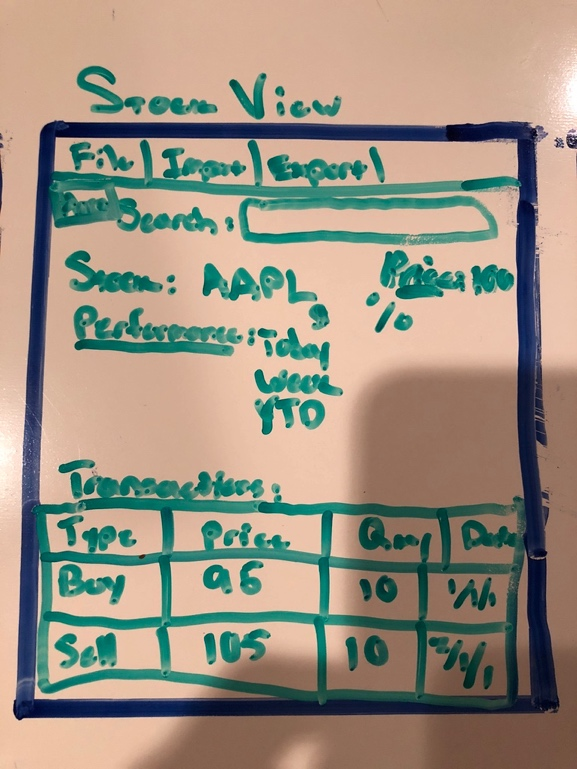 Stock View
File | Import | Export |
Search:
Stock: AAPL Price: 100
Performance: Today %
Week
YTD
Transactions:
Type Price Qnty Date
Buy 95 10 1/1/1
Sell 105 10 2/1/1